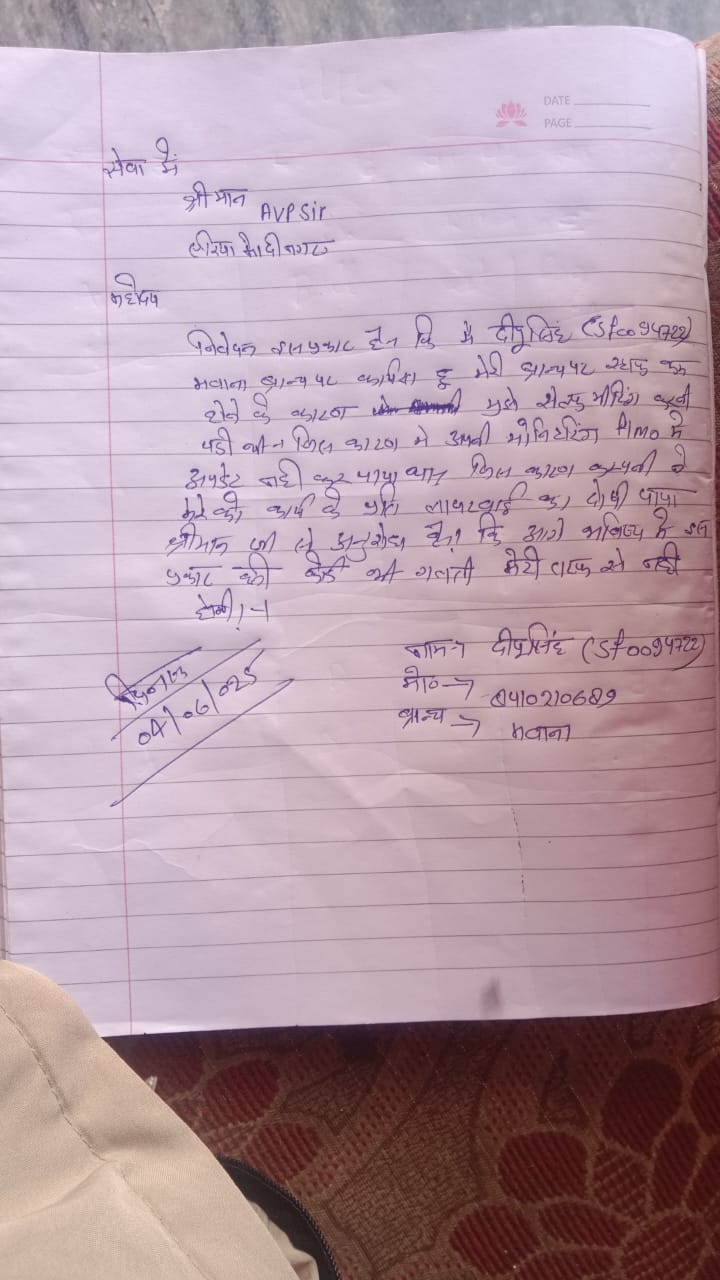 DATE
PAGE
सेवा में
श्रीमान AVP Sir
मोदीनगर
महोदय
निवेदन इस प्रकार है कि मैं दीपू सिंह (Sf0094722)
मवाना ब्रान्च पर कार्यरत हू मेरी ब्रान्च पर स्टाफ कम
होने के कारण मुझे सेन्टर मीटिंग करनी
पडी थी जिस कारण मे अपनी मोनिटरिंग PIMO मे
अपडेट नही कर पाया था जिस कारण कम्पनी ने
मेरे को कार्य के प्रति लापरवाही का दोषी पाया
श्रीमान जी से अनुरोध है कि आगे भविष्य मे इस
प्रकार की कोई भी गलती मेरी तरफ से नही
होगी।
नाम → दीपू सिंह (Sf0094722)
मो० → 8410210689
ब्रान्च → मवाना
दिनांक
04/06/025